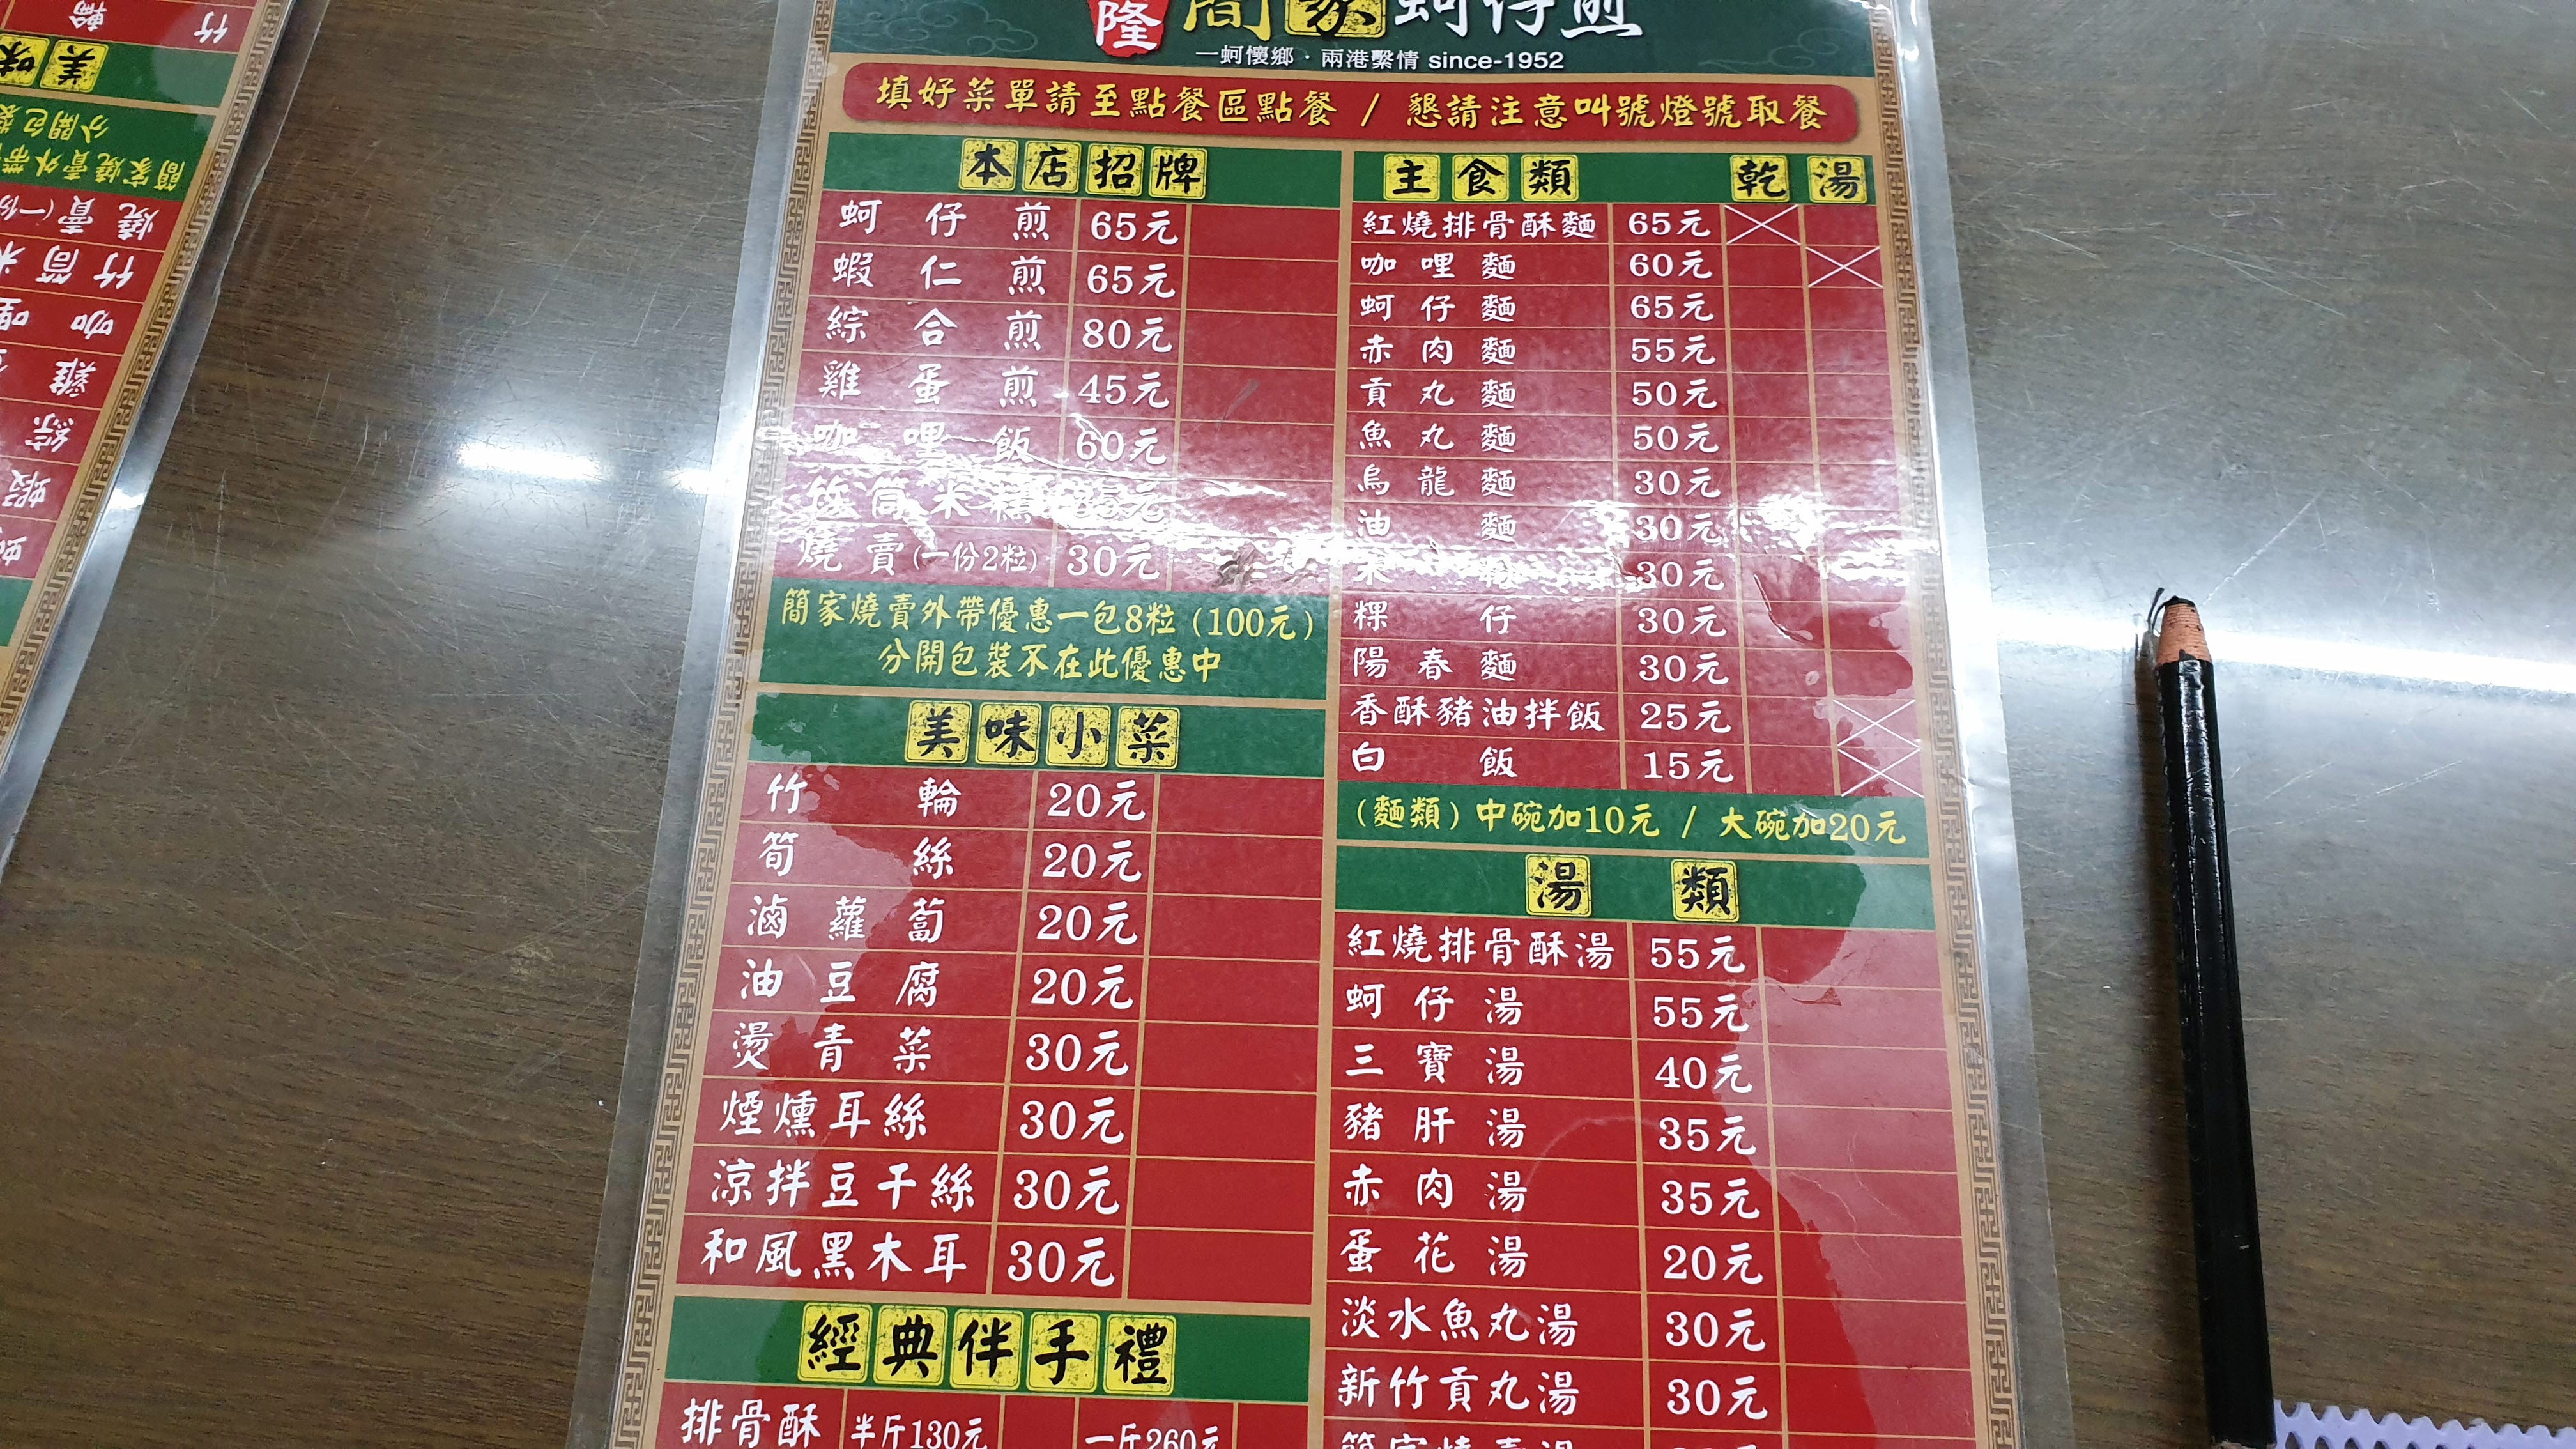 隆 簡家蚵仔煎
一蚵懷鄉・兩港繫情 since-1952
填好菜單請至點餐區點餐 / 懇請注意叫號燈號取餐
本店招牌
蚵仔煎 65元
蝦仁煎 65元
綜合煎 80元
雞蛋煎 45元
咖哩飯 60元
竹筒米糕 35元
燒賣(一份2粒) 30元
簡家燒賣外帶優惠一包8粒(100元)
分開包裝不在此優惠中
美味小菜
竹輪 20元
筍絲 20元
滷蘿蔔 20元
油豆腐 20元
燙青菜 30元
煙燻耳絲 30元
涼拌豆干絲 30元
和風黑木耳 30元
經典伴手禮
排骨酥 半斤130元 一斤260元
主食類 乾 湯
紅燒排骨酥麵 65元
咖哩麵 60元
蚵仔麵 65元
赤肉麵 55元
貢丸麵 50元
魚丸麵 50元
烏龍麵 30元
油麵 30元
米粉 30元
粿仔 30元
陽春麵 30元
香酥豬油拌飯 25元
白飯 15元
(麵類)中碗加10元 / 大碗加20元
湯類
紅燒排骨酥湯 55元
蚵仔湯 55元
三寶湯 40元
豬肝湯 35元
赤肉湯 35元
蛋花湯 20元
淡水魚丸湯 30元
新竹貢丸湯 30元
簡家燒賣湯
竹輪
美味
分開包裝
簡家燒賣外帶
燒賣(一份
竹筒米
咖哩
雞
綜
蝦